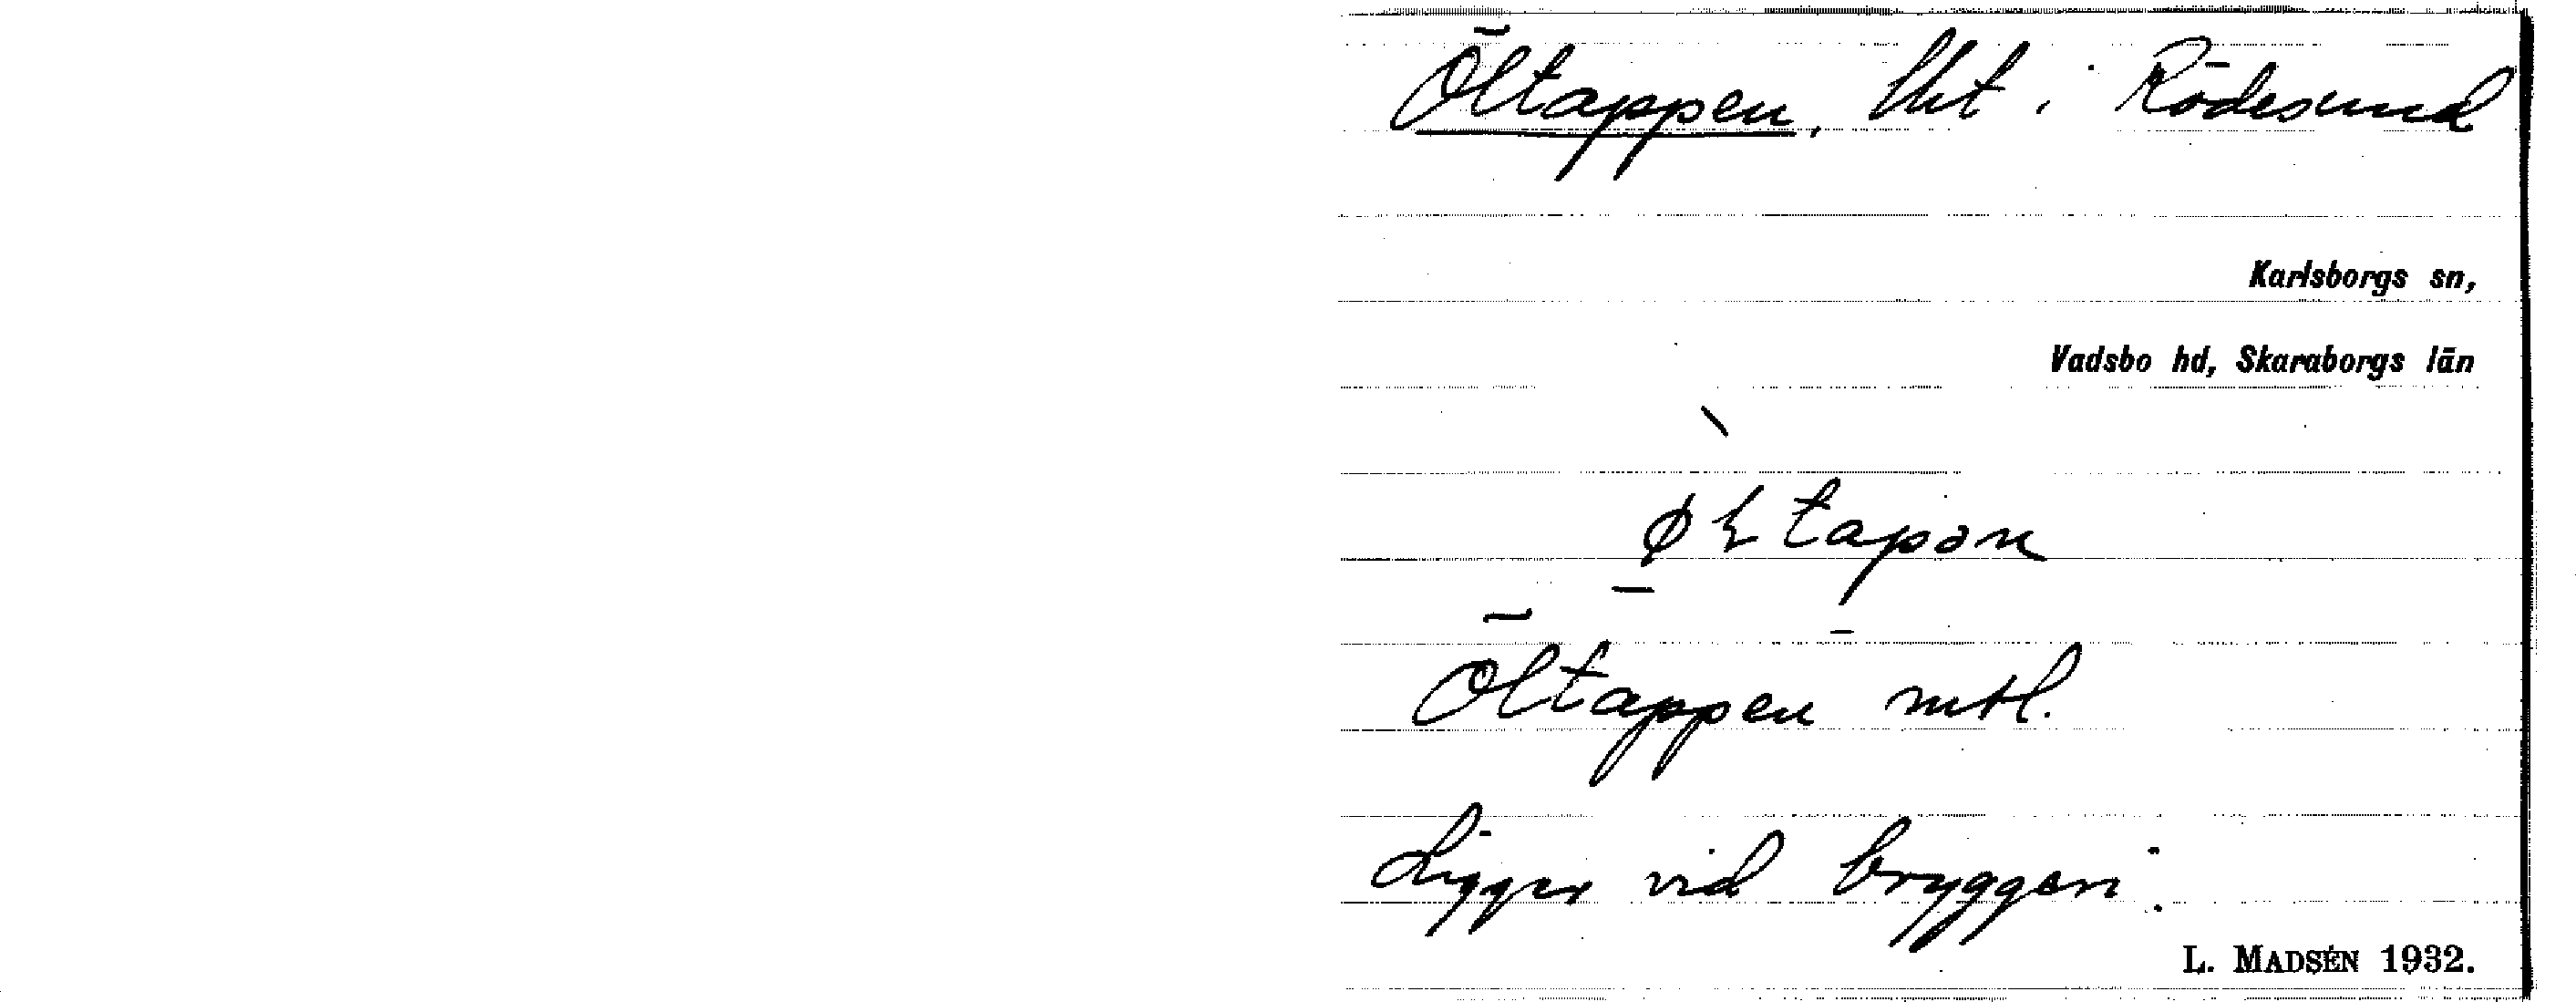 Öltappen, lht i Rödesund
Karlsborgs sn,
Vadsbo hd, Skaraborgs län
Öltappen mtl.
Ligger vid bryggeri.
L. MADSÉN 1932.